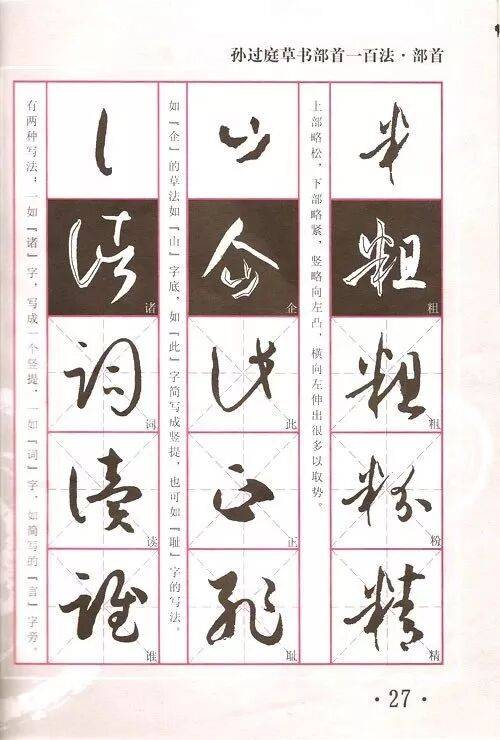 孙过庭草书部首一百法·部首
上部略松，下部略紧，竖略向左凸，横向左伸出很多以取势。
米
粗
粗
粗
粗
粉
粉
精
精
如「企」的草法如「山」字底，如「此」字简写成竖提，也可如「耻」字的写法。
止
企
企
此
此
正
正
耻
耻
有两种写法：一如「诸」字，写成一个竖提，一如「词」字，如简写的「言」字旁。
讠
诸
诸
词
词
读
读
谁
谁
·27·